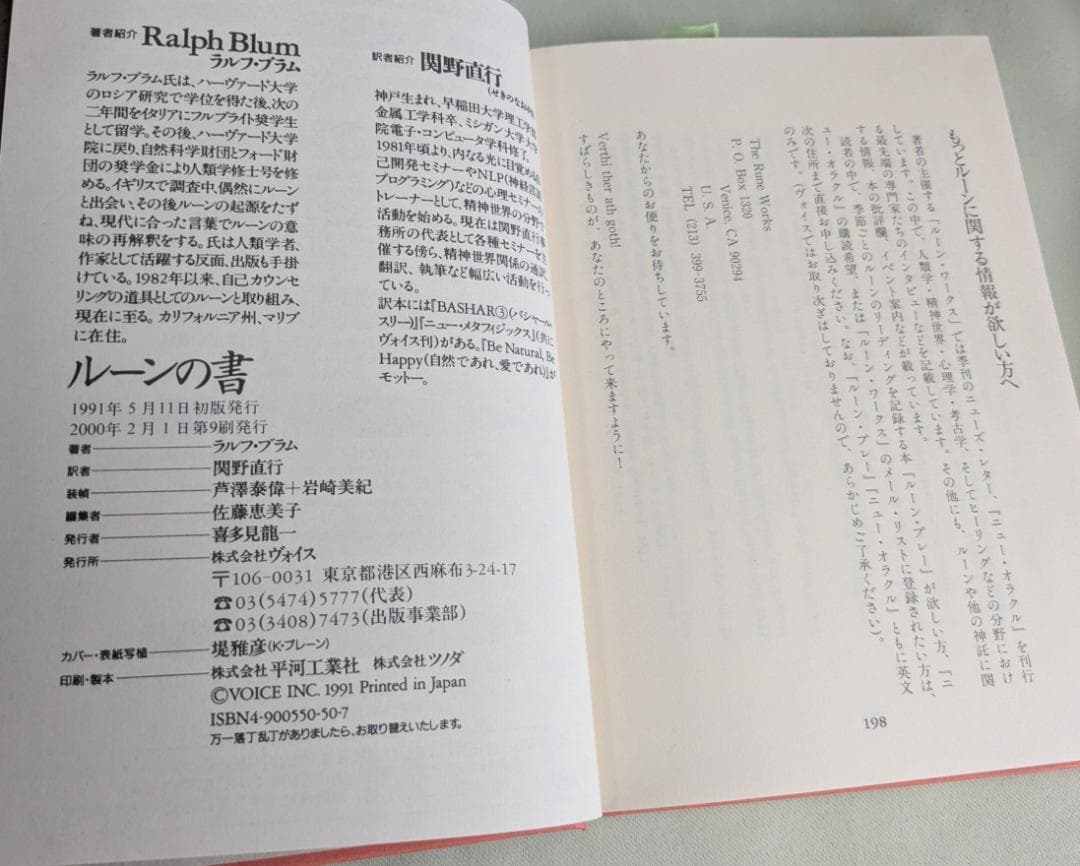 著者紹介 Ralph Blum
ラルフ・ブラム
ラルフ・ブラム氏は、ハーヴァード大学
のロシア研究で学位を得た後、次の
二年間をイタリアにフルブライト奨学生
として留学。その後、ハーヴァード大学
院に戻り、自然科学財団とフォード財
団の奨学金により人類学修士号を修
める。イギリスで調査中、偶然にルーン
と出会い、その後ルーンの起源をたず
ね、現代に合った言葉でルーンの意
味の再解釈をする。氏は人類学者、
作家として活躍する反面、出版も手掛
けている。1982年以来、自己カウンセ
リングの道具としてのルーンと取り組み、
現在に至る。カリフォルニア州、マリブ
に在住。
訳者紹介 関野直行
(せきのなおゆき
神戸生まれ、早稲田大学理工学部
金属工学科卒、ミシガン大学大学
院電子・コンピュータ学科修了。
1981年頃より、内なる光に目覚め、自
己開発セミナーやNLP(神経言語
プログラミング)などの心理セミナーの
トレーナーとして、精神世界の分野で
活動を始める。現在は関野直行事
務所の代表として各種セミナーを主
催する傍ら、精神世界関係の通訳、
翻訳、執筆など幅広い活動を行っ
ている。
訳本には『BASHAR③(バシャール・
スリー)』『ニュー・メタフィジックス』(共に
ヴォイス刊)がある。『Be Natural, Be
Happy(自然であれ、愛であれ)』が
モットー。
ルーンの書
1991年 5月11日初版発行
2000年 2月 1日第9刷発行
著者 ラルフ・ブラム
訳者 関野直行
装幀 芦澤泰偉＋岩崎美紀
編集者 佐藤恵美子
発行者 喜多見龍一
発行所 株式会社ヴォイス
〒106-0031 東京都港区西麻布3-24-17
☎03(5474)5777(代表)
☎03(3408)7473(出版事業部)
カバー・表紙写植 堤雅彦(K・ブレーン)
印刷・製本 株式会社平河工業社 株式会社ツノダ
©VOICE INC. 1991 Printed in Japan
ISBN4-900550-50-7
万一落丁乱丁がありましたら、お取り替えいたします。
もっとルーンに関する情報が欲しい方へ
著者の主催する「ルーン・ワークス」では季刊のニューズ・レター、『ニュー・オラクル』を刊行
しています。この中で、人類学・精神世界・心理学・考古学、そしてヒーリングなどの分野におけ
る最先端の専門家たちのインタビューなどを記載しています。その他にも、ルーンや他の神託に関
する情報、本の批評欄、イベント案内などが載っています。
読者の中で、季節ごとのルーンのリーディングを記録する本『ルーン・プレー』が欲しい方、『ニ
ュー・オラクル』の購読希望、または「ルーン・ワークス」のメール・リストに登録されたい方は、
次の住所まで直接お申し込みください。なお、『ルーン・プレー』『ニュー・オラクル』ともに英文
のみです。(ヴォイスではお取り次ぎはしておりませんので、あらかじめご了承ください)。
The Rune Works
P. O. Box 1320
Venice, CA 90294
U. S. A.
TEL (213) 399-3755
あなたからのお便りをお待ちしています。
Verthi ther ath goth!
すばらしきものが、あなたのところにやって来ますように！
198